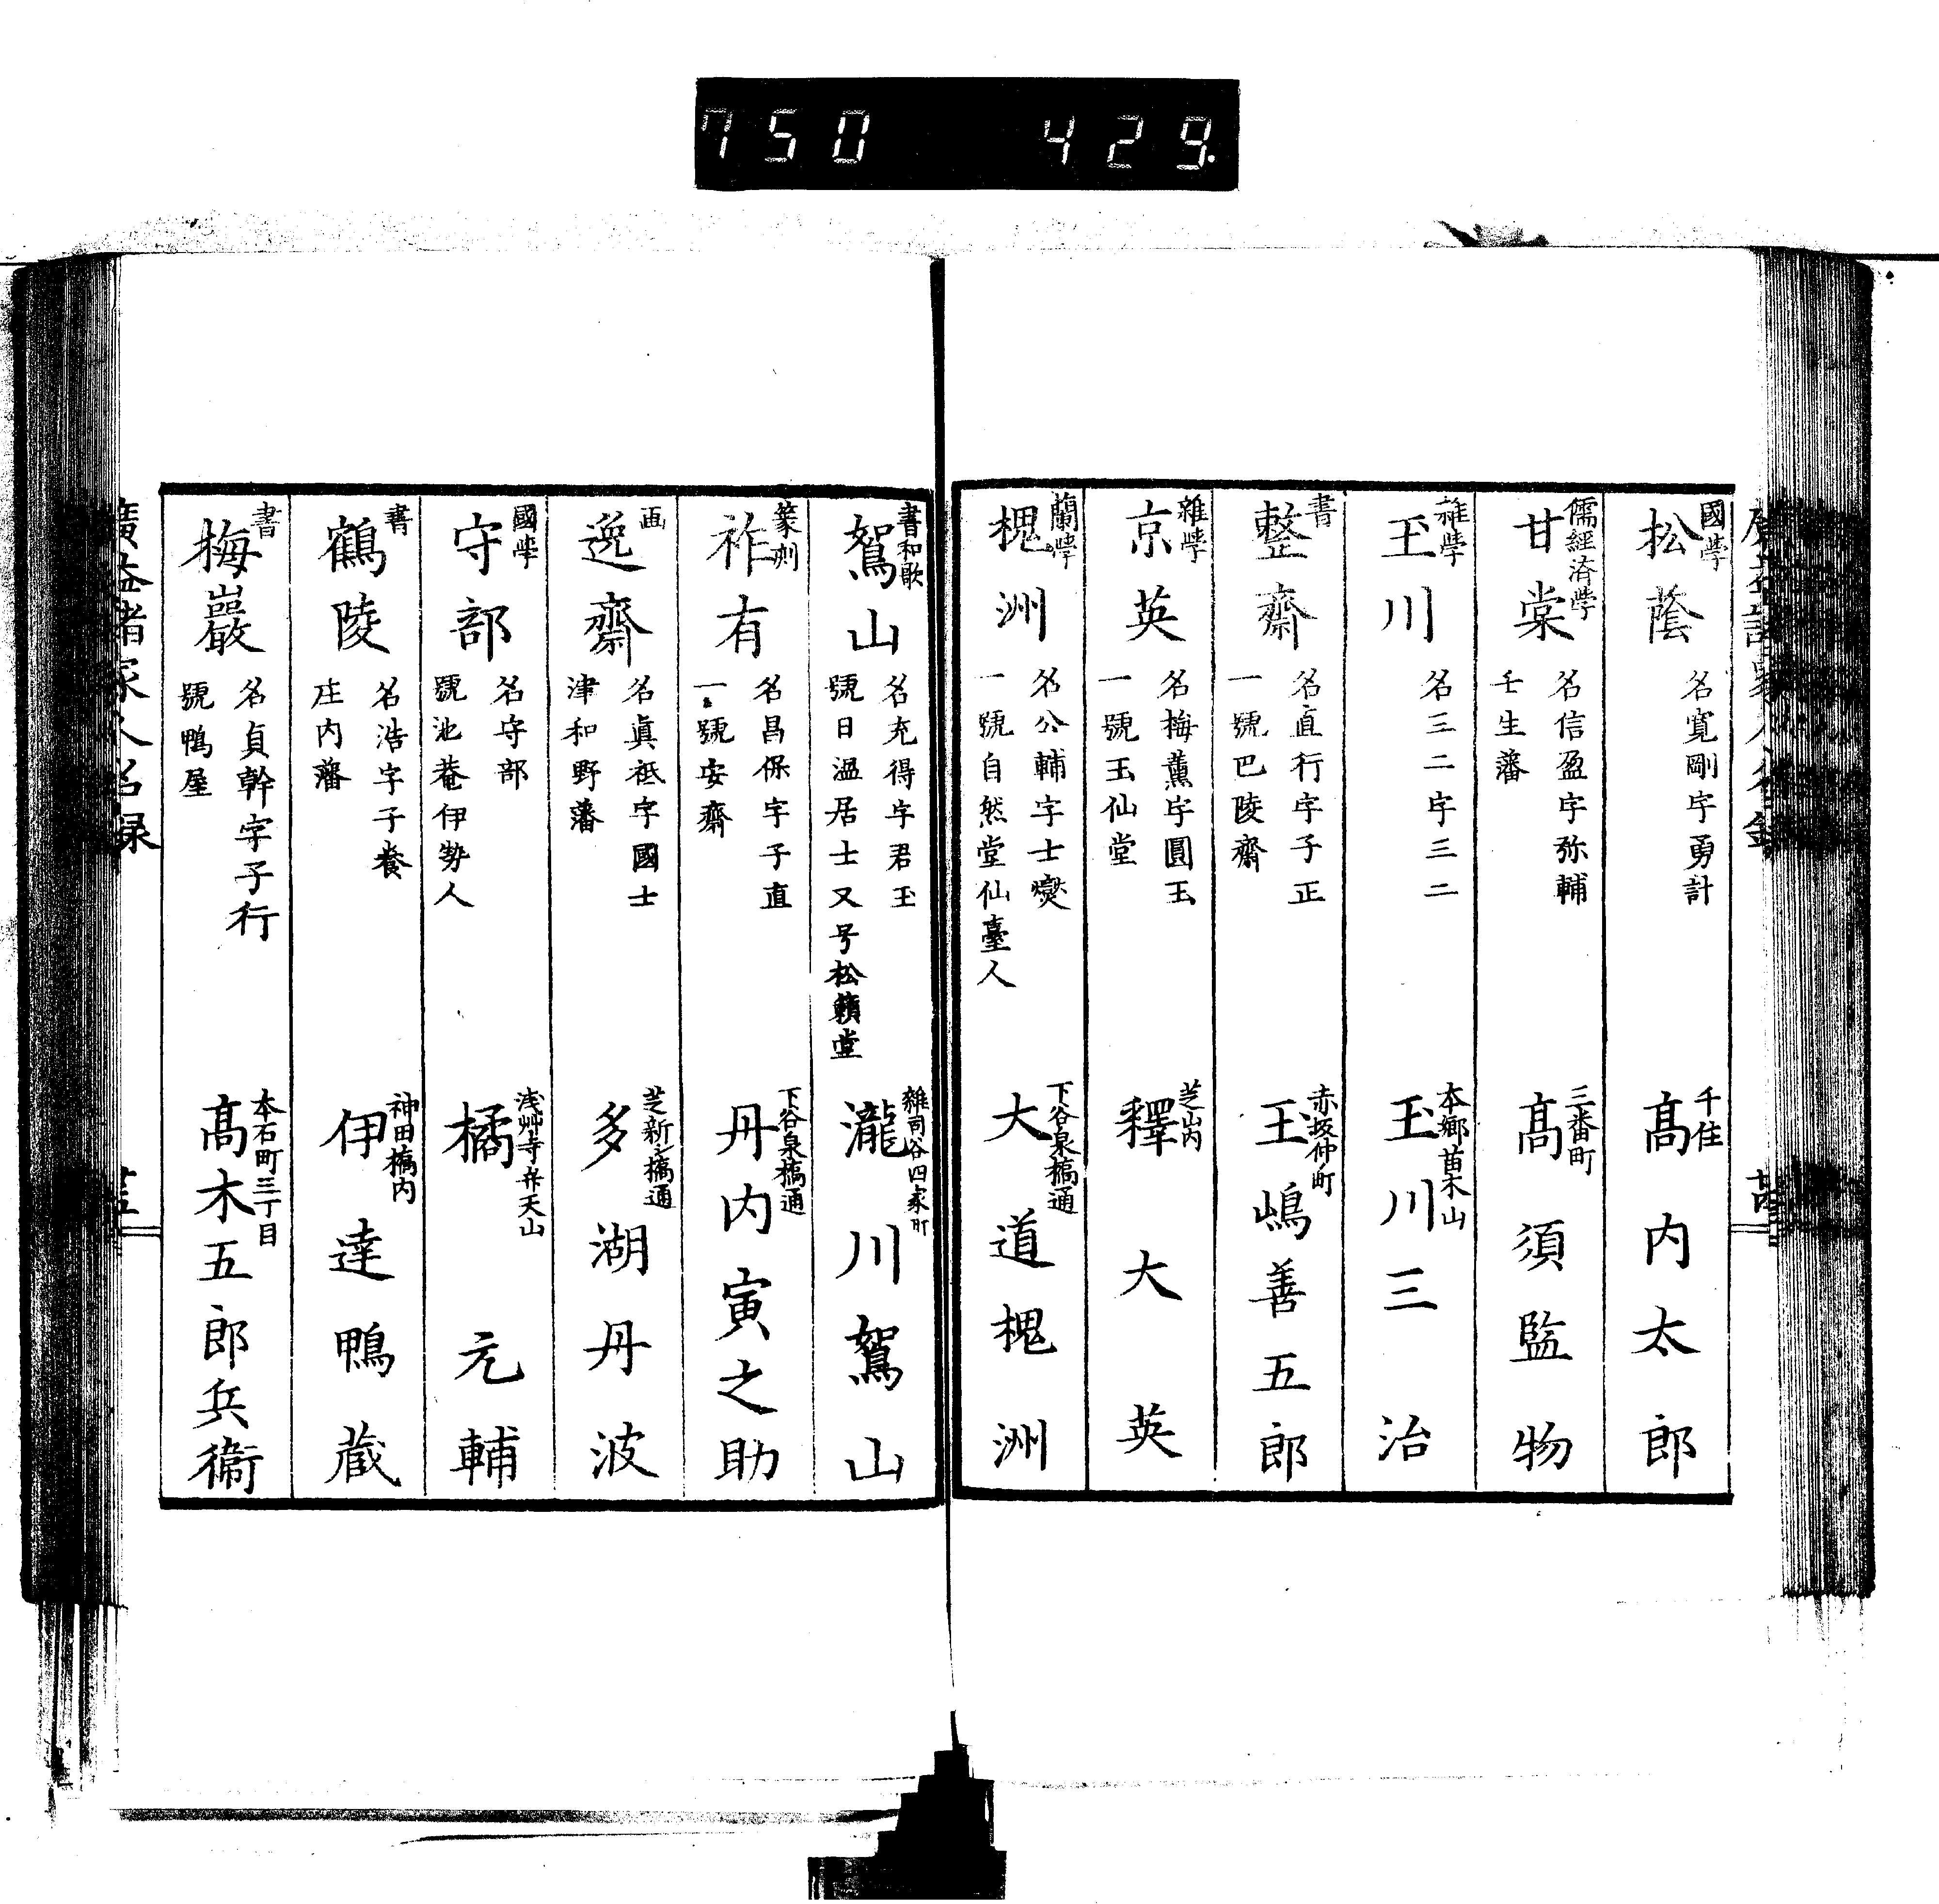 750 429.
國學
松蔭
名寛剛字勇計
千住
髙内太郎
儒經済學
甘棠
名信盈字弥輔
壬生藩
三番町
髙須監物
雑學
玉川
名三二字三二
本郷苗木山
玉川三治
書
整齋
名直行字子正
一號巴陵齋
赤坂仲ノ町
王嶋善五郎
雜學
京英
名梅薫字圓玉
一號玉仙堂
芝山内
釋大英
蘭學
槐洲
名公輔字士燮
一號自然堂仙臺人
下谷泉橋通
大道槐洲
書和歌
鴛山
名充得字君玉
號日温居士又号松籟堂
雜司谷四家町
瀧川鴛山
篆刻
祚有
名昌保字子直
一號安齋
下谷泉橋通
丹内寅之助
画
逸齋
名眞祗字國士
津和野藩
芝新シ橋通
多湖丹波
國學
守部
名守部
號池菴伊勢人
浅艸寺弁天山
橘元輔
書
鶴陵
名浩字子養
庄内藩
神田橋内
伊達鴨蔵
書
梅巖
名貞幹字子行
號鴨屋
本石町三丁目
髙木五郎兵衞
廣益諸家人名録